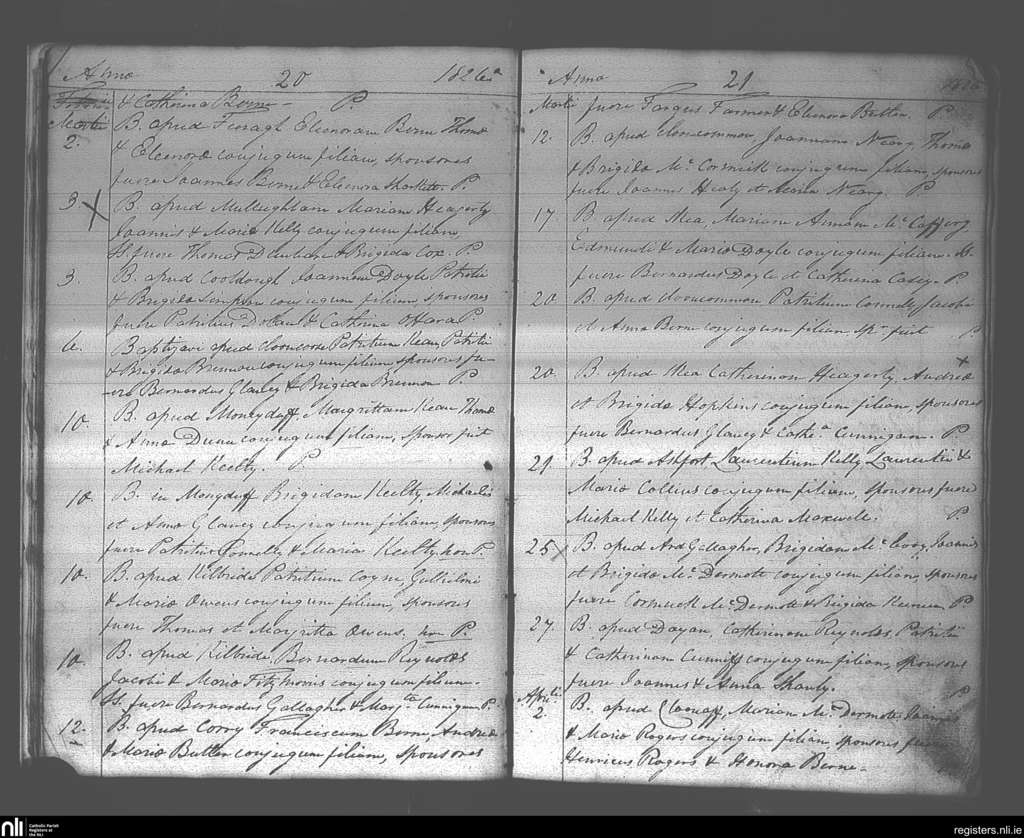 Anno 20 1826
& Catherina Berne - P
Martii B. apud Finagh Eleonoram Berne Thomæ
2. & Eleonoræ conjugum filiam, sponsores
fuere Joannes Berne & Eleonora P.
3 B. apud Mulleighlam Mariam Heagerty
Joannis & Mariæ Kelly conjugum filiam,
Ss. fuere Thomas & Brigida Cox. P.
3. B. apud Cooldough Joannem Doyle Patritii
& Brigidæ Simpson conjugum filium, sponsores
fuere Patritius Dolan & Cathrina OHara P.
6. Baptizavi apud Patritium Kean Patritii
& Brigidæ Brennan conjugum filium sponsores fu-
-ere Bernardus Glancy & Brigida Brennan P.
10. B. apud Moneyduff, Margrittam Kean Thomæ
& Anna Dunn conjugum filiam, sponsor fuit
Michael Keelty. P.
10. B. in Moneyduff Brigidam Keelty Michaelis
et Anna Glancy conjugum filiam, sponsores
fuere Patritius Connelly & Maria Keelty P.
10. B. apud Kilbride Patritium Coyne, Gulielmi
& Mariæ Owens conjugum filium, sponsores
fuere Thomas et Margritta Owens. P.
10. B. apud Kilbride, Bernardum Reynolds
Jacobi & Mariæ Fitzharris conjugum filium.
Ss. fuere Bernardus Gallagher & Marg.ta Cunnigam P.
12. B. apud Corry Franciscum Berne, Andreæ
& Mariæ Butler conjugum filium, sponsores
Anno 21 1826
Martii fuere Fargus Farmer & Eleonora Butler. P.
12. B. apud Clooncommon Joannem Neary, Thomæ
& Brigidæ Mc. Cormick conjugum filium, sponsores
fuere Joannes Healy et Maria Neary P.
17 B. apud Mea, Mariam Annam Mc. Cafferry
Edmundi & Mariæ Doyle conjugum filiam. Ss.
fuere Bernardus Doyle et Catherina Casey. P.
20. B. apud Clooncommon Patritium Connelly Jacobi
et Anna Berne conjugum filium Spr. fuit P.
20. B. apud Mea Catherinam Heagerty, Andreæ
et Brigidæ Hopkins conjugum filiam, sponsores
fuere Bernardus Glancy & Cathe.a Cunnigam. P.
21. B. apud Ashfort Laurentium Kelly Laurentii &
Mariæ Collins conjugum filium, sponsores fuere
Michael Kelly et Catherina Maxwell. P.
25 B. apud Ard Gallagher, Brigidam Mc. Joannis
et Brigidæ Mc. Dermote conjugum filiam, sponsores
fuere Cormick Mc. Dermote & Brigida P.
27. B. apud Dayan, Catherinam Reynolds, Patritii
& Catherinam Cunniff conjugum filiam, sponsores
fuere Joannes & Anna Shanly. P.
Aprilis 2. B. apud Cloonaff, Mariam Mc. Dermote, Joannis
& Mariæ Rogers conjugum filiam, sponsores
Henricus Rogers & Honora Berne -
nli
Catholic Parish
Registers at
the NLI
registers.nli.ie